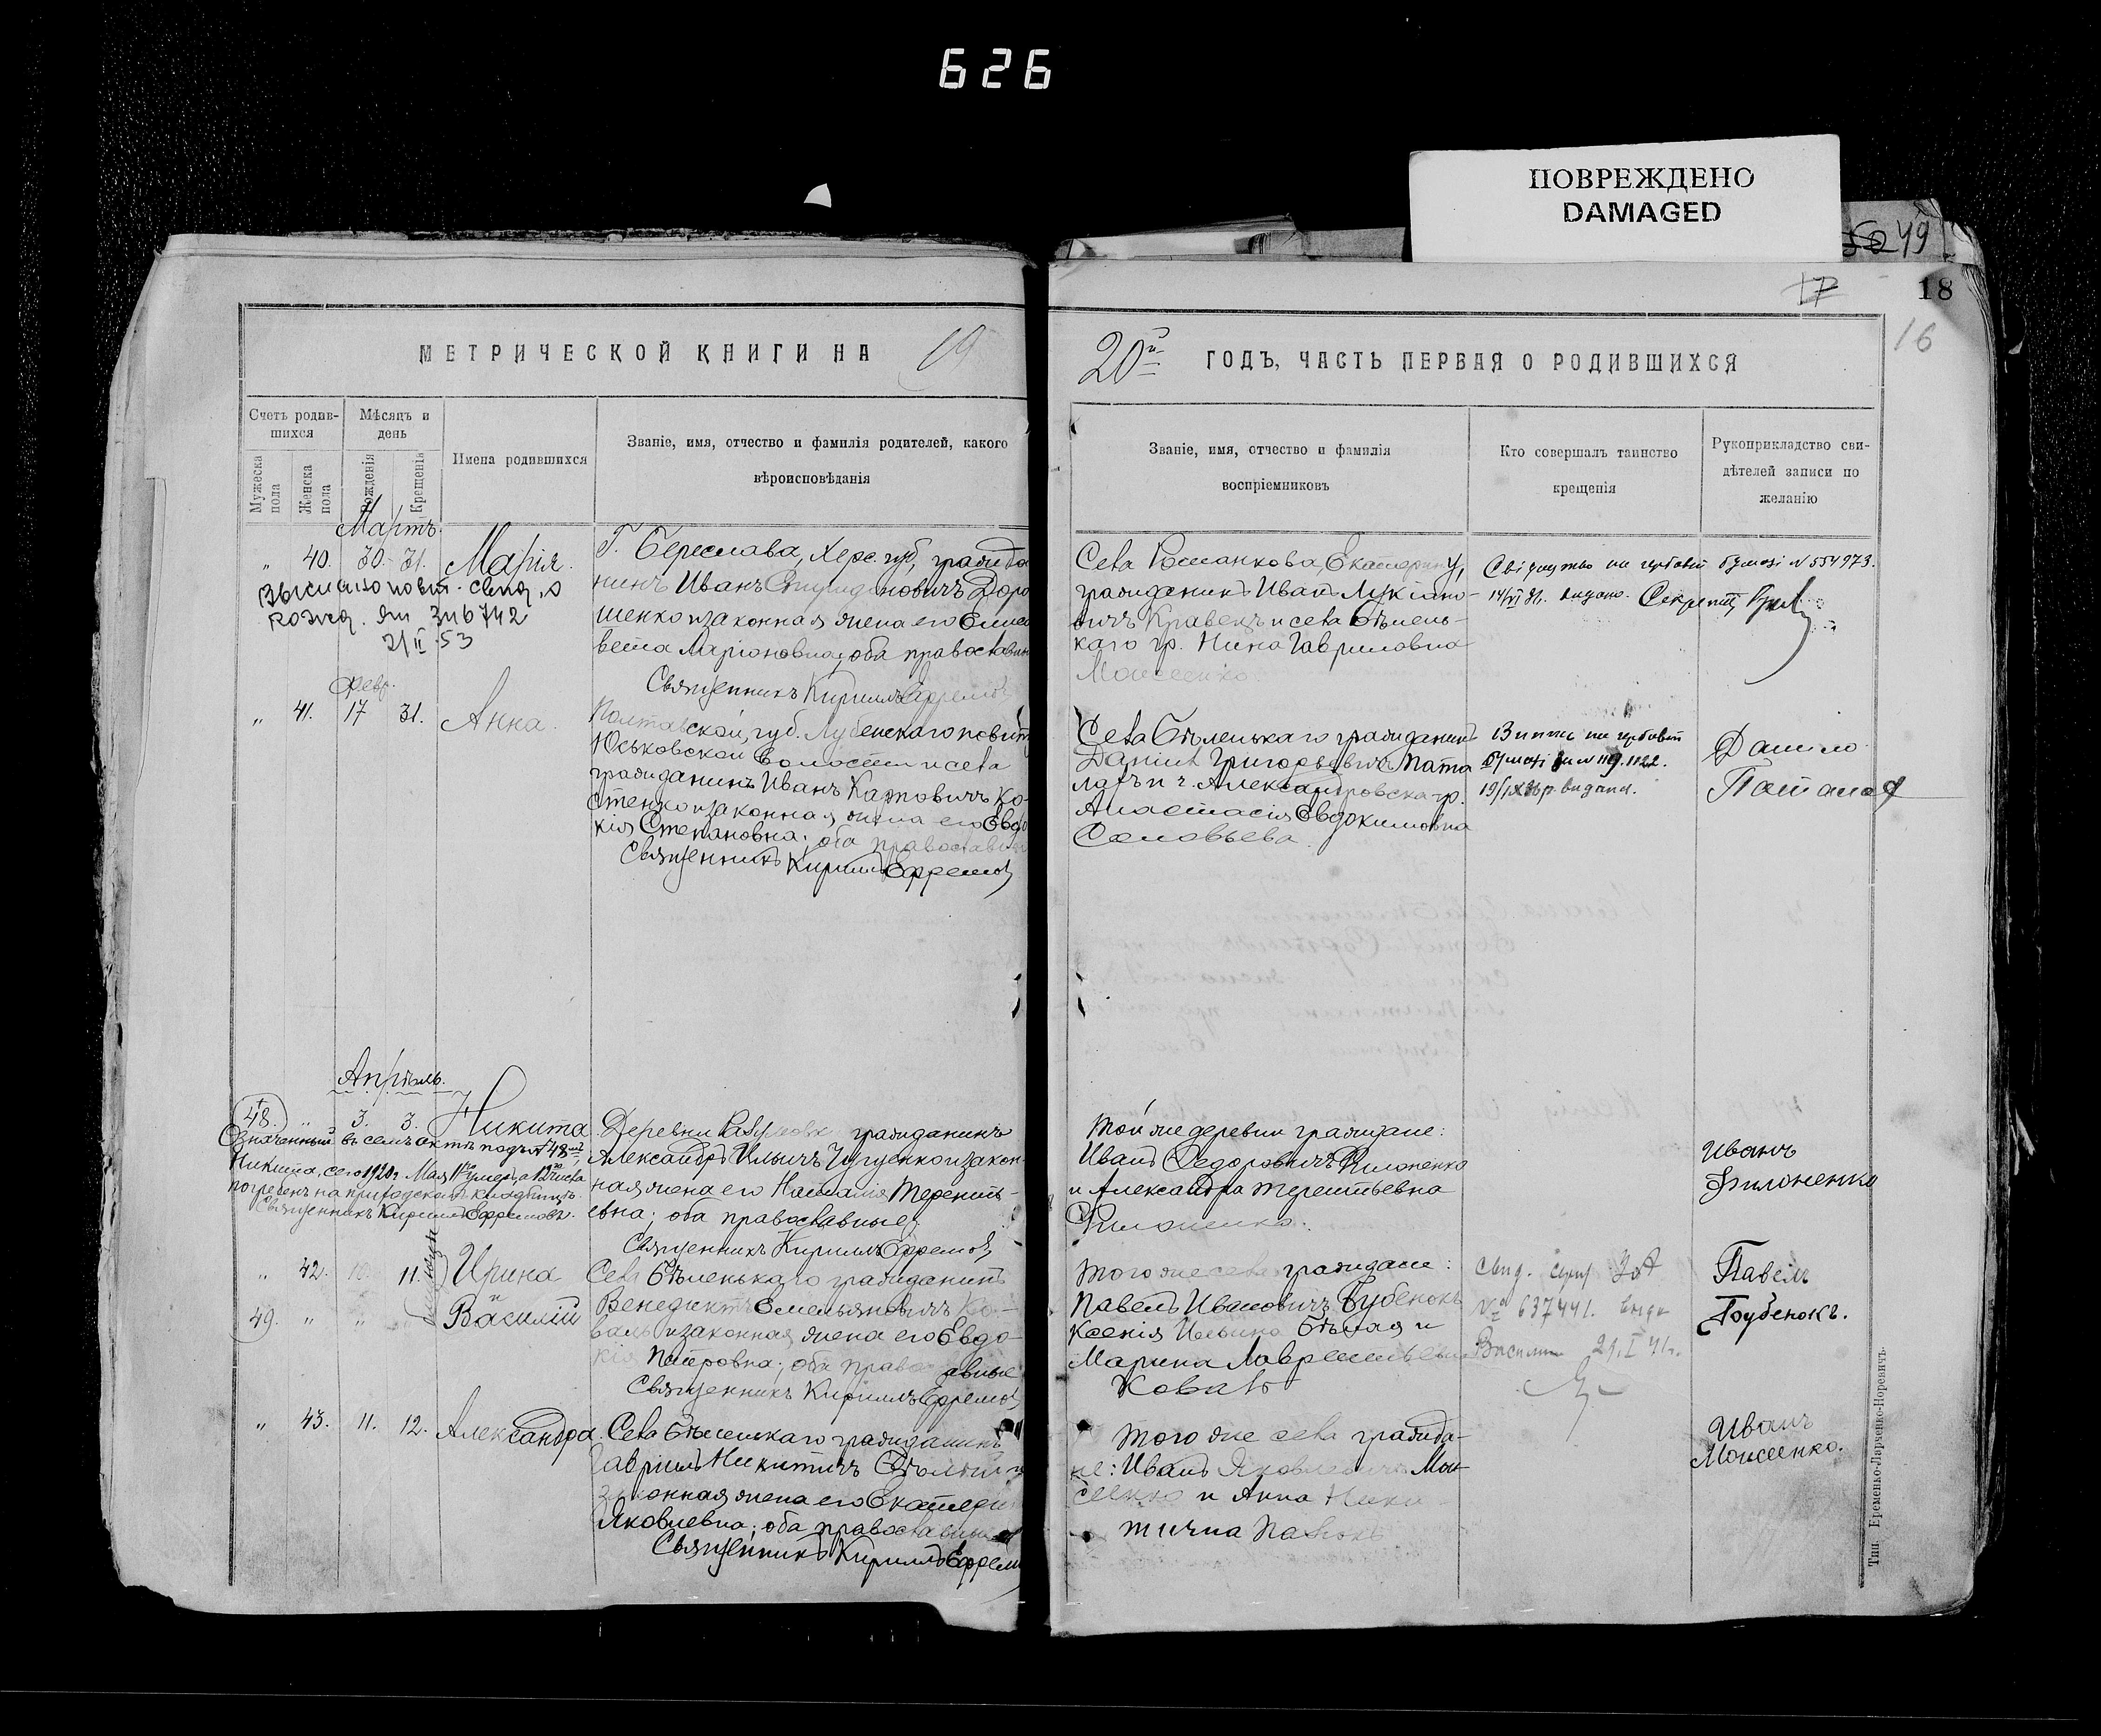 626
ПОВРЕЖДЕНО
DAMAGED
49
17
18
16
МЕТРИЧЕСКОЙ КНИГИ НА 19
20й ГОДЪ, ЧАСТЬ ПЕРВАЯ О РОДИВШИХСЯ
Счетъ родив-
шихся
Мѣсяцъ и
день
Мужеска
пола
Женска
пола
Рожденія
Крещенія
Имена родившихся
Званіе, имя, отчество и фамилія родителей, какого
вѣроисповѣданія
Званіе, имя, отчество и фамилія
воспріемниковъ
Кто совершалъ таинство
крещенія
Рукоприкладство сви-
дѣтелей записи по
желанію
Мартъ.
„ 40. 30. 31. Марія.
Г. Береслава, Херс. губ, гражда
нинъ Иванъ Спиридоновичъ Доро
шенко и законная жена его Елиса
вета Ларіоновна; оба православн
Священникъ Кириллъ Ефремов
2/II 53
Села Романкова, Екатерин. у,
гражданинъ Иванъ Лукіано-
вичъ Кравецъ и села Бѣлень-
каго гр. Нина Гавриловна
Моисеенко.
Свідоцтво на гербовій бумазі № 554973.
видано. Секретар
Февр.
„ 41. 17 31. Анна.
Полтавской, губ. Лубенскаго повѣт
Юськовской волости и села
гражданинъ Иванъ Карповичъ Ко-
стенко и законная жена его Евдо
кія Степановна; оба православн
Священникъ Кириллъ Ефремов
Села Бѣленькаго гражданинъ
Даніилъ Григорьевичъ Пата
лахъ и г. Александровска гр.
Анастасія Евдокимовна
Соловьева.
Випис на гербовій
бумазі за № 119.1122.
Данило
Апрѣль.
48. „ 3. 3. Никита
Означенный въ семъ актѣ подъ № 48й
Никита, сего 1920г. Мая 11го умеръ, а 12го числа
погребенъ на приходскомъ кладбищѣ.
Священникъ Кириллъ Ефремовъ.
Деревни гражданинъ
Александръ Ильичъ и закон-
ная жена его Наталія Теренть-
евна; оба православные
Священникъ Кириллъ Ефремов
Той же деревни граждане:
Иванъ Федоровичъ Филоненко
и Александра Терентьевна
Филоненко.
Иванъ
Филоненко
„ 42. 10. 11. Ирина
и
49. „ „ Василій
близнецы
Села Бѣленькаго гражданинъ
Венедиктъ Емельяновичъ Ко-
валь и законная жена его Евдо-
кія Петровна; оба православные
Священникъ Кириллъ Ефремов
Того же села граждане:
Павелъ Ивановичъ Бубенокъ
Ксенія Ильина Бѣлая и
Марина Лаврентьевна
Коваль
№ 637441.
Василию 21.I 41г.
Павелъ
Бубенокъ.
„ 43. 11. 12. Александра
Села Бѣленькаго гражданинъ
Гавриилъ Никитичъ Бѣлый и
законная жена его Екатери
Яковлевна; оба православные
Священникъ Кириллъ Ефрем
Того же села гражда-
не: Иванъ Яковлевичъ Мои-
сеенко и Анна Ники-
тична
Иванъ
Моисеенко.
Тип. Еременко-Ларченко-Норевичъ.